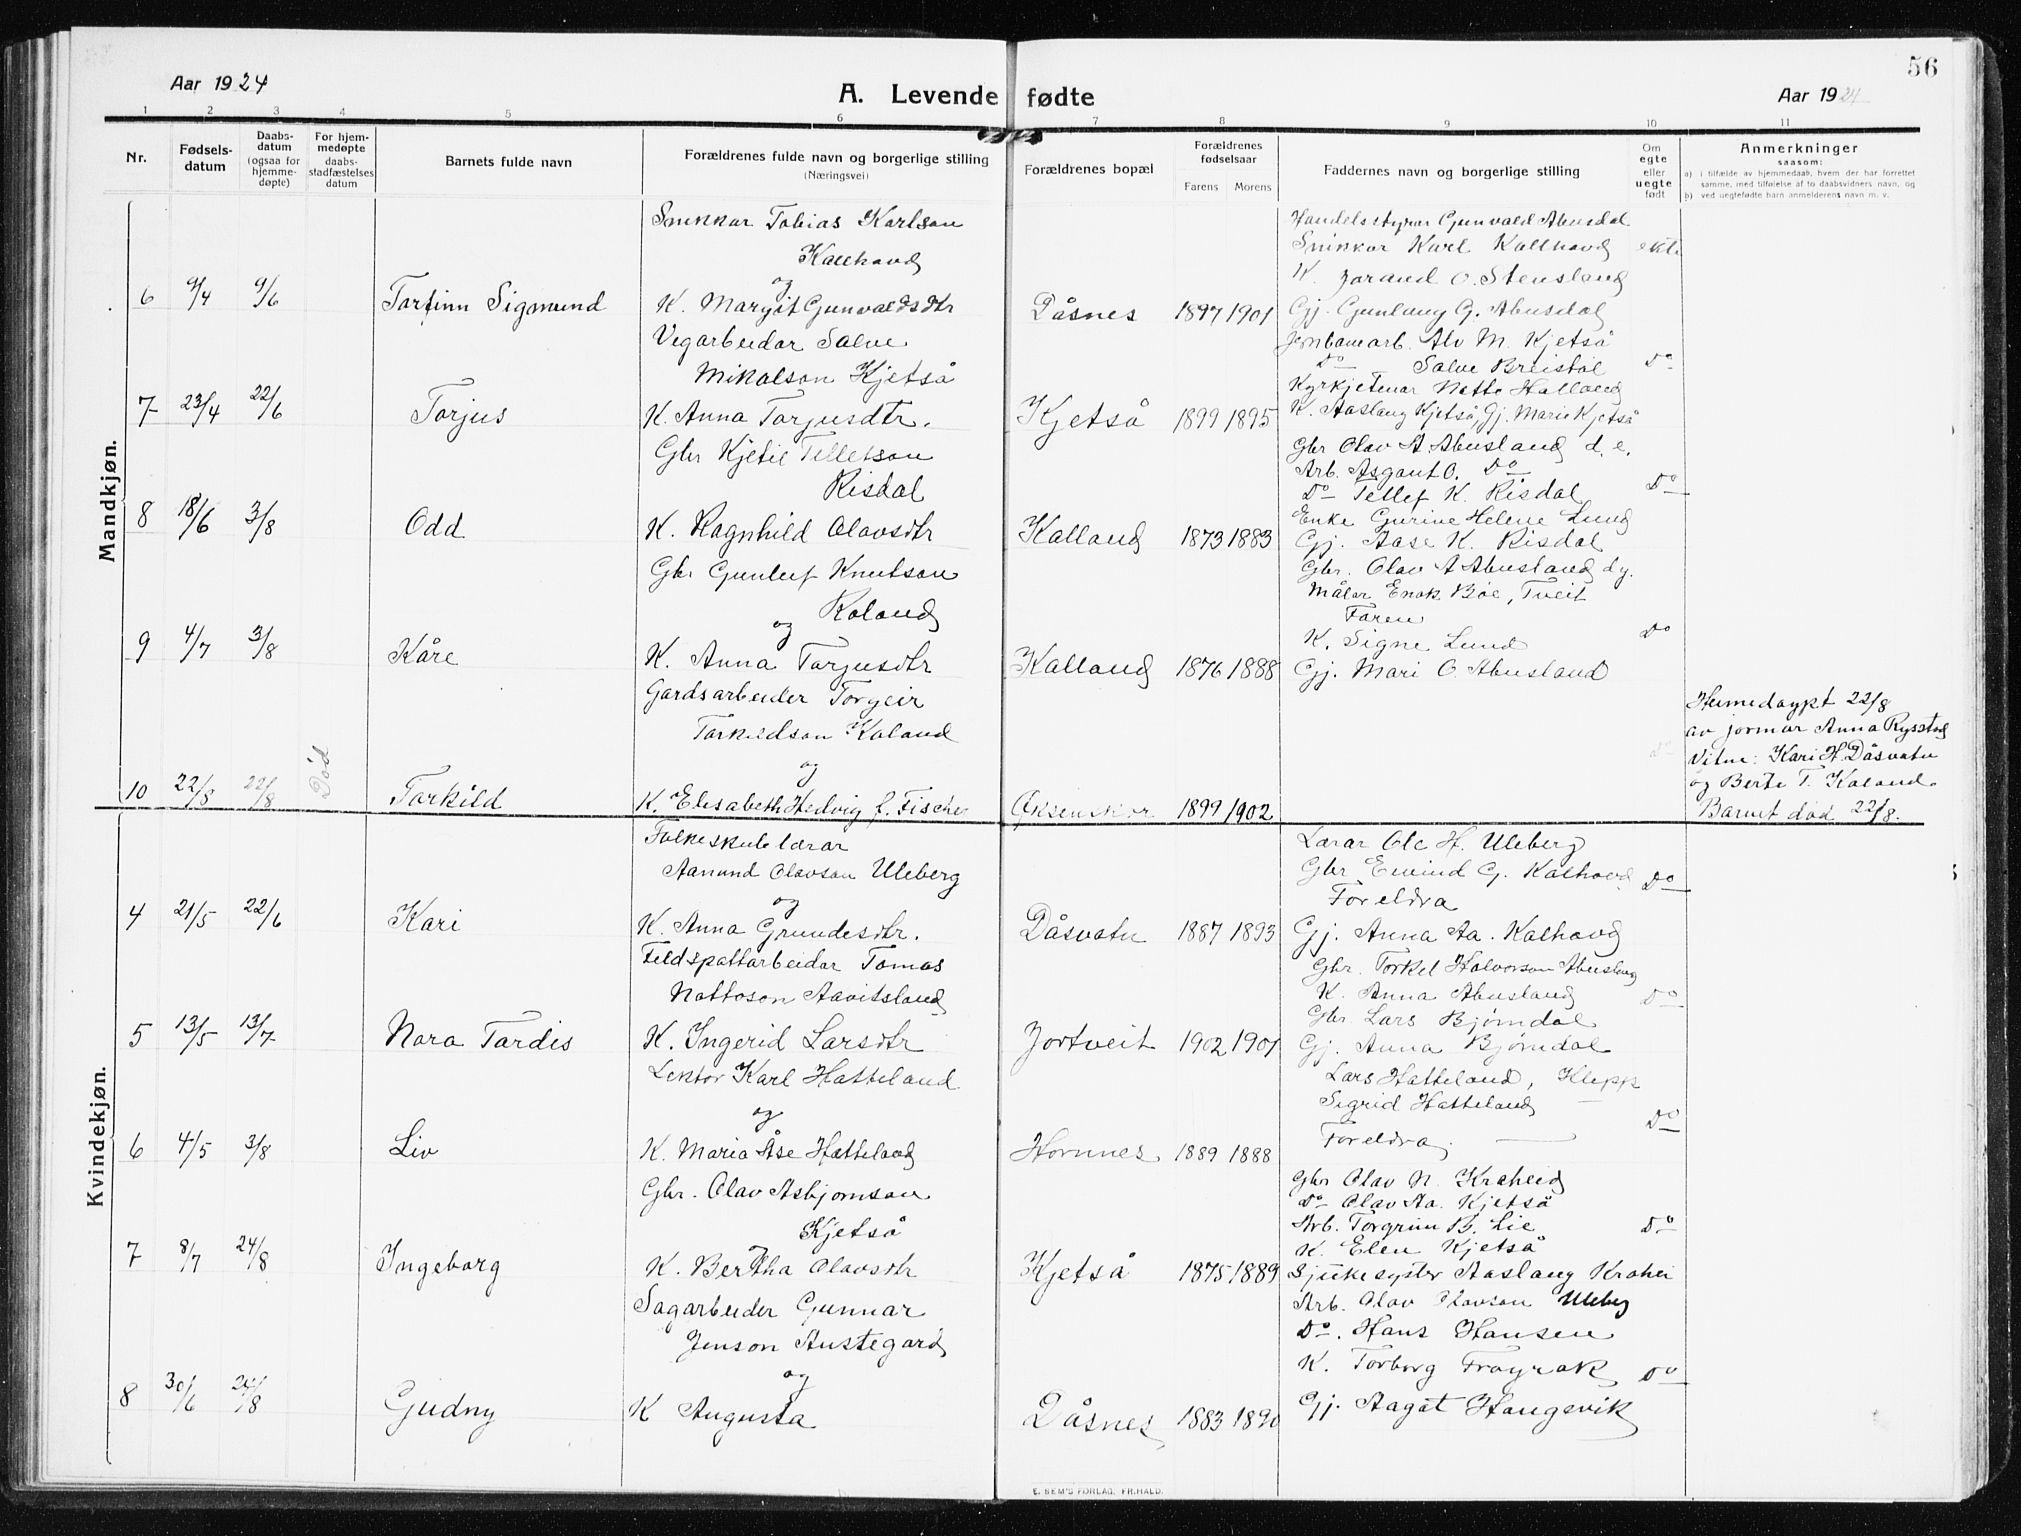 56
Aar 1924
A. Levende fødte
Aar 1924
1 2 3 4 5 6 7 8 9 10 11
Nr.
Fødsels-
datum
Daabs-
datum
(ogsaa for
hjemme-
døpte)
For hjem-
medøpte
daabs-
stadfæstelses
datum
Barnets fulde navn
Forældrenes fulde navn og borgerlige stilling
(Næringsvei)
Forældrenes bopæl
Forældrenes
fødselsaar
Farens Morens
Faddernes navn og borgerlige stilling
Om
egte
eller
uegte
født
Anmerkninger
saasom:
a) i tilfælde av hjemmedaab, hvem der har forrettet
samme, med tilføielse af to daabsvidners navn, og
b) ved uegtefødte barn anmelderens navn m. v.
Mandkjøn.
6 9/4 9/6 Torfinn Sigmund
Snikkar Tobias Karlson
Kallhovd
og
K. Margit Gunvaldsdtr
Dåsnes 1897 1901
Handelsstyrar Gunvald Abusdal
Snikkar Karl Kallhovd ekte
K. Jorand O. Stensland
Gj. Gunlaug G. Abusdal
7 23/4 22/6 Torjus
Vegarbeidar Salve
Mikalson Kjetså
K. Anna Torjusdtr.
Kjetså 1899 1895
Jernbanearb. Alv M. Kjetså
Do Salve Breistøl Do
Kyrkjetenar Notto Halland
K. Aaslaug Kjetså, Gj. Marie Kjetså
8 18/6 3/8 Odd
Gbr Kjetil Telletson
Risdal
K. Ragnhild Olavsdtr
Kalland 1873 1883
Gbr Olav A Abusland d. e.
Arb. Asgaut O. Do
Do Tellef K. Risdal Do
Enke Gurine Helene Lund
Gj. Aase K. Risdal
9 4/7 3/8 Kåre
Gbr Gunleif Knutson
Roland
og
K. Anna Torjusdtr
Kalland 1876 1888
Gbr. Olav A Abusland d y.
Målar Enok Bøe, Tveit
Faren
K. Signe Lund Do
Gj. Mari O. Abusland
10 22/8 22/8 Død Torkild
Gardsarbeider Torgeir
Torkildson Kaland
og
K. Elisabeth Hedvig f. Fischer
1899 1902
Do
Heimedøypt 22/8
av jormor Anna Rysstad
Vitne: Kari H. Dåsvatn
og Berte T. Kaland.
Barnet død 22/8.
Kvindekjøn.
4 21/5 22/6 Kari
Folkeskulelærar
Aanund Olavson Uleberg
og
K. Anna Grundesdtr.
Dåsvatn 1887 1893
Lærar Ole H. Uleberg
Gbr Eivind G. Kalhovd Do
Foreldra
Gj. Anna Aa. Kalhovd
5 13/5 13/7 Nora Tordis
Feldspattarbeidar Tomas
Nottoson Aavitsland
K. Ingerid Larsdtr
Jortveit 1902 1901
Gbr. Torkel Halvorson Abusland
K. Anna Abusland Do
Gbr Lars Bjørndal
Gj. Anna Bjørndal
6 4/5 3/8 Liv
Lektor Karl Hatteland
og
K. Maria Åse Hatteland
Hornnes 1889 1888
Lars Hatteland, Klepp
Sigrid Hatteland
Foreldra. Do
7 8/7 24/8 Ingeborg
Gbr. Olav Asbjørnson
Kjetså
og
K. Bertha Olavsdtr
Kjetså 1875 1889
Gbr Olav N. Kraheid
Do Olav Aa. Kjetså
Arb. Torgrim B. Lie Do
K. Elen Kjetså
Sjukesyster Aaslaug Krahei
8 30/6 24/8 Gudny
Sagarbeider Gunnar
Jenson Austegard
og
K Augusta
Dåsnes 1883 1890
Arb. Olav Olavson Uleberg
Do. Hans Hansen
K. Torborg Frøyrak Do
Gj. Aagot Haugsvik
E. SEM'S FORLAG. FR.HALD.